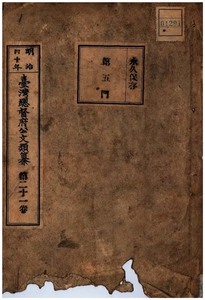 永久保存
第五門
明治四十年
臺灣總督府公文類纂
第二十一卷